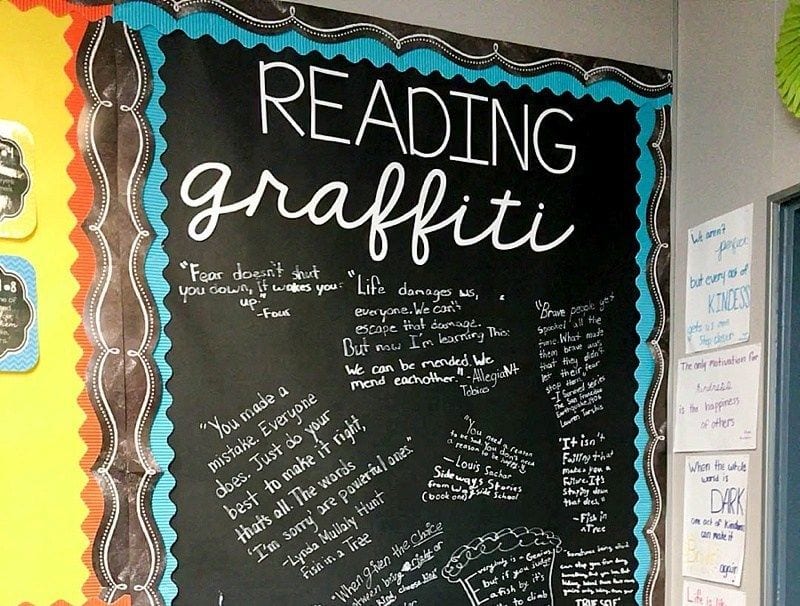 READING
graffiti
"Fear doesn't shut
you down, it wakes you
up."
-Four
"Life damages us,
everyone. We can't
escape that damage.
But now I'm learning This:
We can be mended. We
mend eachother."
-Allegiant
Tobias
"Brave people get
spooked all the
time. What made
them brave was
that they didn't
let their fear
stop them."
-I Survived series
The San Francisco
Earthquake, 1906
Lauren Tarshis
"You made a
mistake. Everyone
does. Just do your
best to make it right,
that's all. The words
'I'm sorry' are powerful ones."
-Lynda Mullaly Hunt
Fish in a Tree
"You need a reason
to be sad. You don't need
a reason to be happy."
-Louis Sachar
Sideways Stories
from Wayside School
(book one)
"It isn't
Failing that
makes you a
Failure. It's
Staying down
that does."
-Fish in
a Tree
"When given the choice
between being right or
kind choose kind
Everybody is a Genius
but if you judge
a fish by it's
to climb
TRUE SELF
We aren't
perfect
but every act of
KINDESS
gets us one
step closer
The only motivation for
kindness
is the happiness
of others
When the whole
world is
DARK
one act of kindness
can make it
Bright
again
Life is like